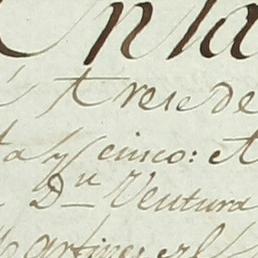 En la
trese de
ta y cinco: et
Dn Ventura
Martines